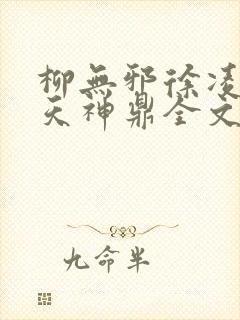 柳無邪徐凌
天神鼎全文
九命半